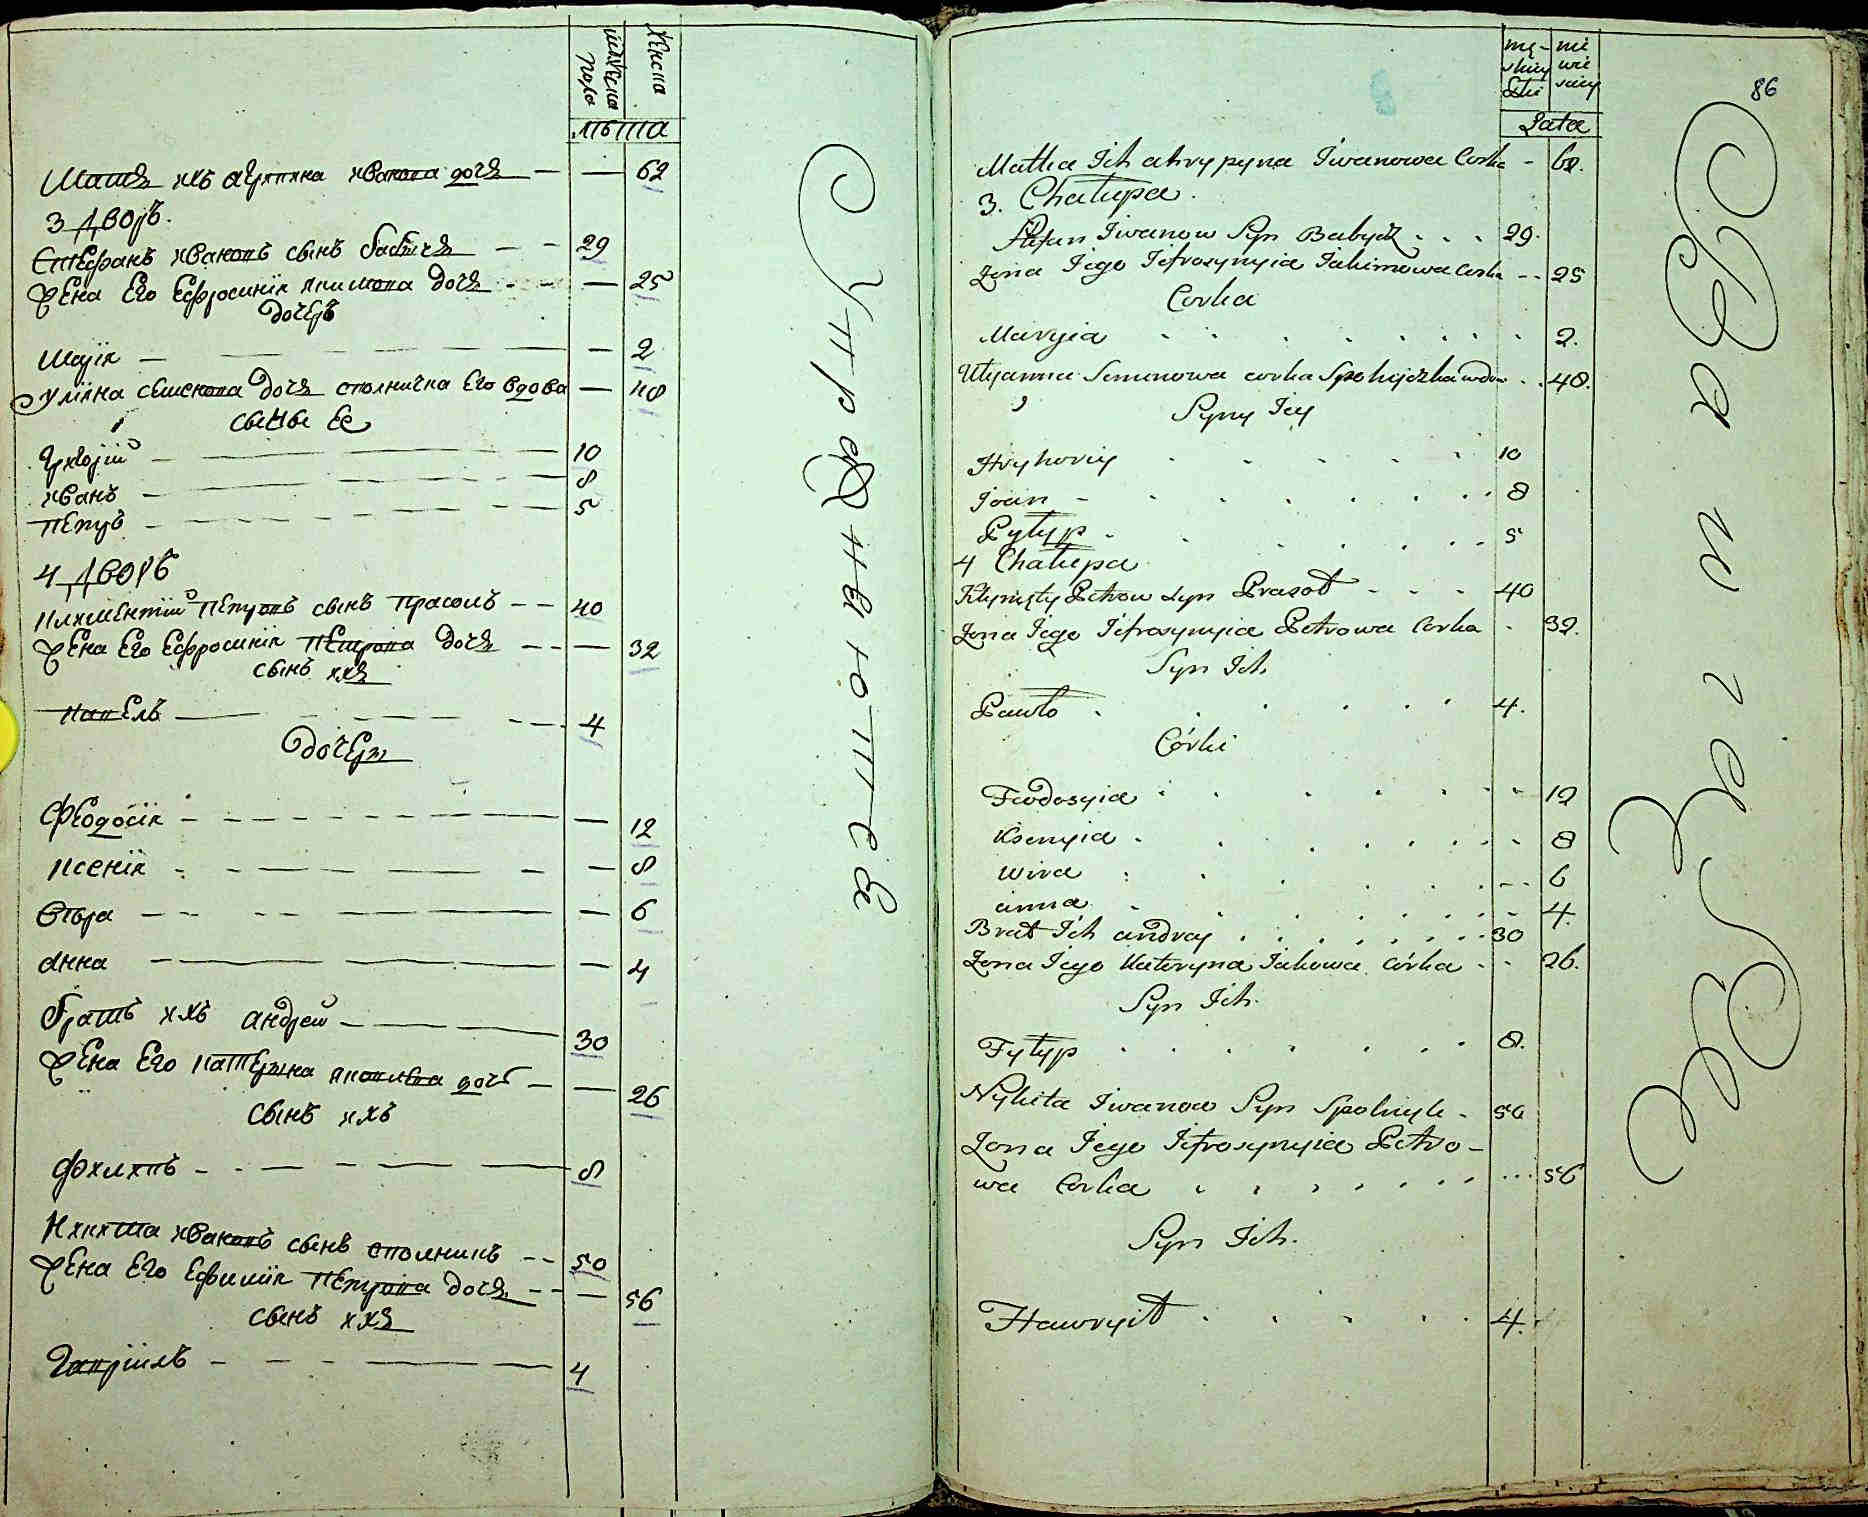 мужеска полу
женска
лѣта
Матя ихъ агрипина иванова дочь — — 62
3 дворъ.
Стефанъ ивановъ сынъ бабичь — — 29
Жена Его Ефросинія якимова дочь — — 25
дочерь
Марія — 2
Уліяна семенова дочь сполничка Его вдова — 40
сыны Ее
Григорій — 10
иванъ — 8
Петръ — 5
4 дворъ
Климентій Петровъ сынъ Прасолъ — — 40
Жена Его Ефросинія Петрова дочь — — 32
сынъ ихъ
Павелъ — 4
дочери
Феодосія — 12
Ксенія — 8
Вѣра — — 6
анна — 4
братъ ихъ андрей — 30
Жена Его Катерина яковлева дочь — — 26
сынъ ихъ
Филипъ — 8
Никита ивановъ сынъ сполникъ — — 50
Жена Его Ефимія Петрова дочь — — 56
сынъ ихъ
Гавріилъ — 4
Упражненютсе
86
męskiey płci
niewieściey
Lata
Matka Ich ahrypyna Iwanowa Corka - 62.
3. Chałupa.
Stefan Iwanow Syn Babycz . . . 29.
Żona Iego Iefrosynyia Iakimowa Corka - - 25
Corka
Maryia . . . 2.
Ulyanna Semenowa corka Spolnyczka wdow . . 40.
Syny Iey
Hryhoriy . . . 10
Joan - . . . 8
Pytyp . . . 5
4 Chałupa
Kłymęty Petrow Syn Prasoł . . . 40
Żona Iego Iefrosynyia Petrowa Corka . 32.
Syn Ich.
Pawło . . . 4.
Córki
Feodosyia . . . 12
Ksenyia . . . 8
Wira . . . 6
anna . . . 4.
Brat Ich andrey . . . 30
Żona Iego Kateryna Iakowa córka . . 26.
Syn Ich.
Fyłyp . . . 8.
Nykita Iwanow Syn Spolnyk - 50
Żona Iego Iefrosynyia Petro-
wa Corka . . . 56
Syn Ich.
Hawryił . . . 4.